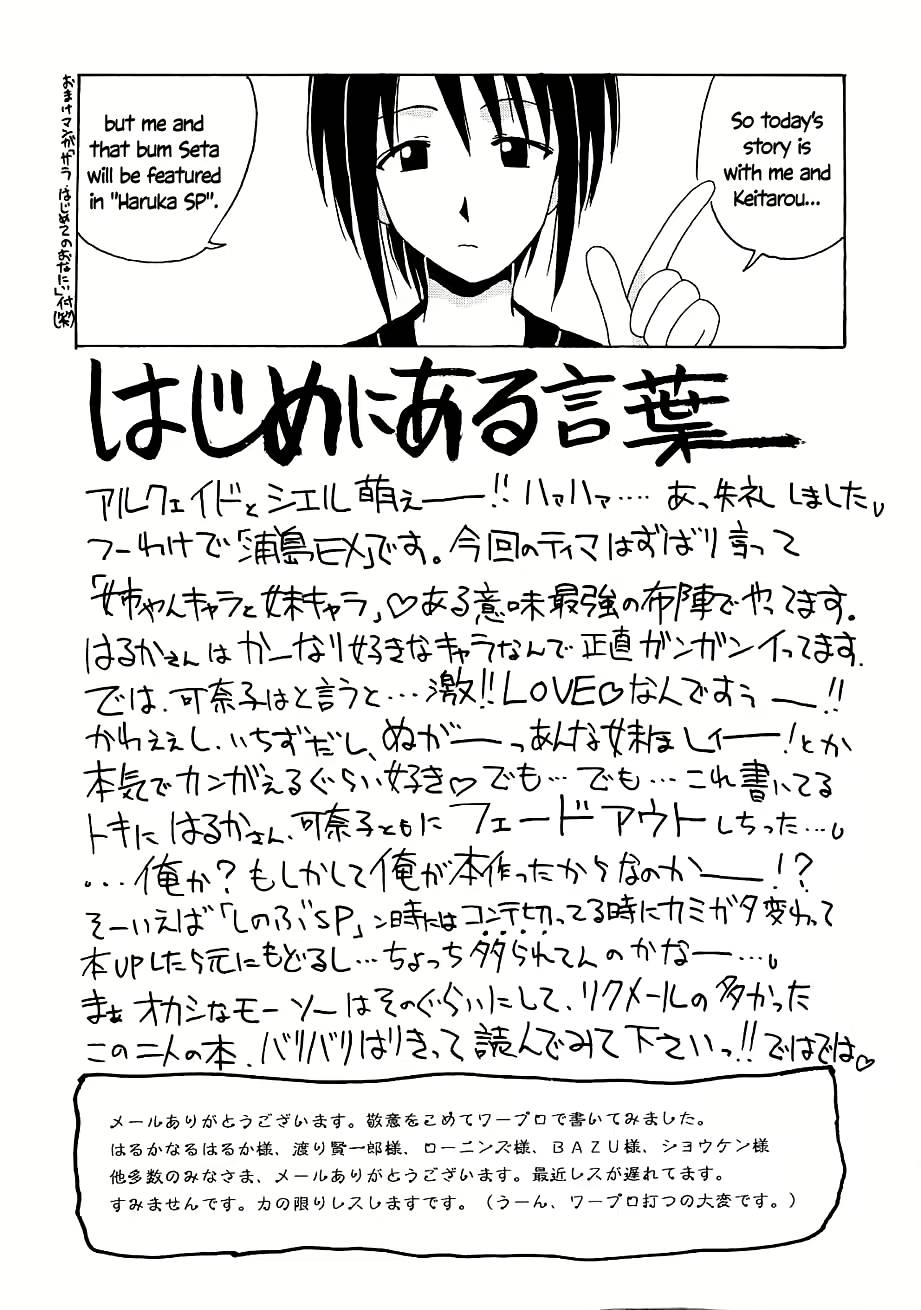 So today's
story is
with me and
Keitarou...
but me and
that bum Seta
will be featured
in "Haruka SP".
はじめにある言葉
アルクェイドとシエル萌えー!! ハァハァ‥‥ あっ失礼しました
つーわけで「浦島EX」です。今回のティマはずばり言って
「姉ちゃんキャラと妹キャラ」♡ある意味最強の布陣でやってます。
はるかさんはかーなり好きなキャラなんで正直ガンガンイってます.
では、可奈子はと言うと…激!!LOVE♡なんですぅー!!
かわえぇし、いちずだし、ぬがーっあんな妹ほしィー!とか
本気でカンがえるぐらい好き♡でも…でも…これ書いてる
トキにはるかさん、可奈子ともにフェードアウトしちった…
...俺か?もしかして俺が本作ったからなのかー!?
そーいえば「しのぶSP」ン時にはコンテ切ってる時にカミガタ変わって
本UPしたら元にもどるし…ちょっち
まぁオカシなモーソーはそのぐらいにして、リクメールの多かった
この二人の本、バリバリはりきって読んでみて下さいっ!!ではでは♡
メールありがとうございます。敬意をこめてワープロで書いてみました。
はるかなるはるか様、渡り賢一郎様、ローニンズ様、BAZU様、ショウケン様
他多数のみなさま、メールありがとうございます。最近レスが遅れてます。
すみませんです。力の限りレスしますです。(うーん、ワープロ打つの大変です。)